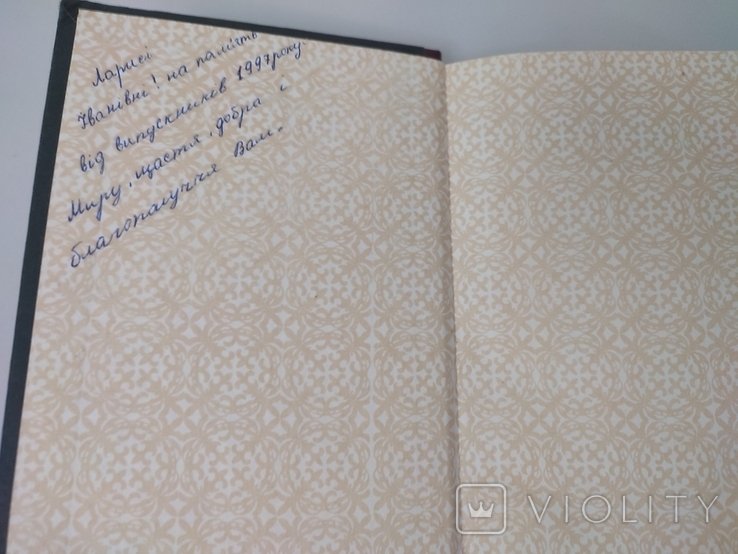 Ларисі
Іванівні! на пам'ять
від випускників 1997 року.
Миру, щастя, добра і
благополуччя Вам.
VIOLITY